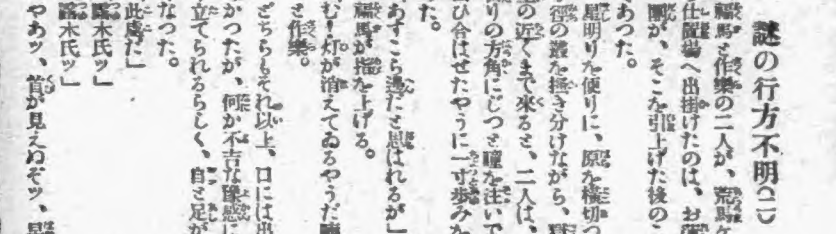 謎の行方不明(二)
福馬と作樂の二人が、荒馬ヶ
仕置場へ出掛けたのは、お蒲
團が、そこを引上げた後のこ
あつた。
星明りを便りに、原を横切つ
徑の叢を掻き分けながら、
の近くまで來ると、二人は、
りの方角にじつと瞳を注いで
ひ合はせたやうに一寸歩みを
た。
あすこら邊だと思はれるが」
福馬が指を上げる。
む！灯が消えてゐるやうだ
と作樂。
どちらもそれ以上、口には出
かつたが、何か不吉な豫感に
立てられるらしく、自と足が
なつた。
此處だ」
露木氏ッ」
露木氏ッ」
やあッ、首が見えぬぞッ、